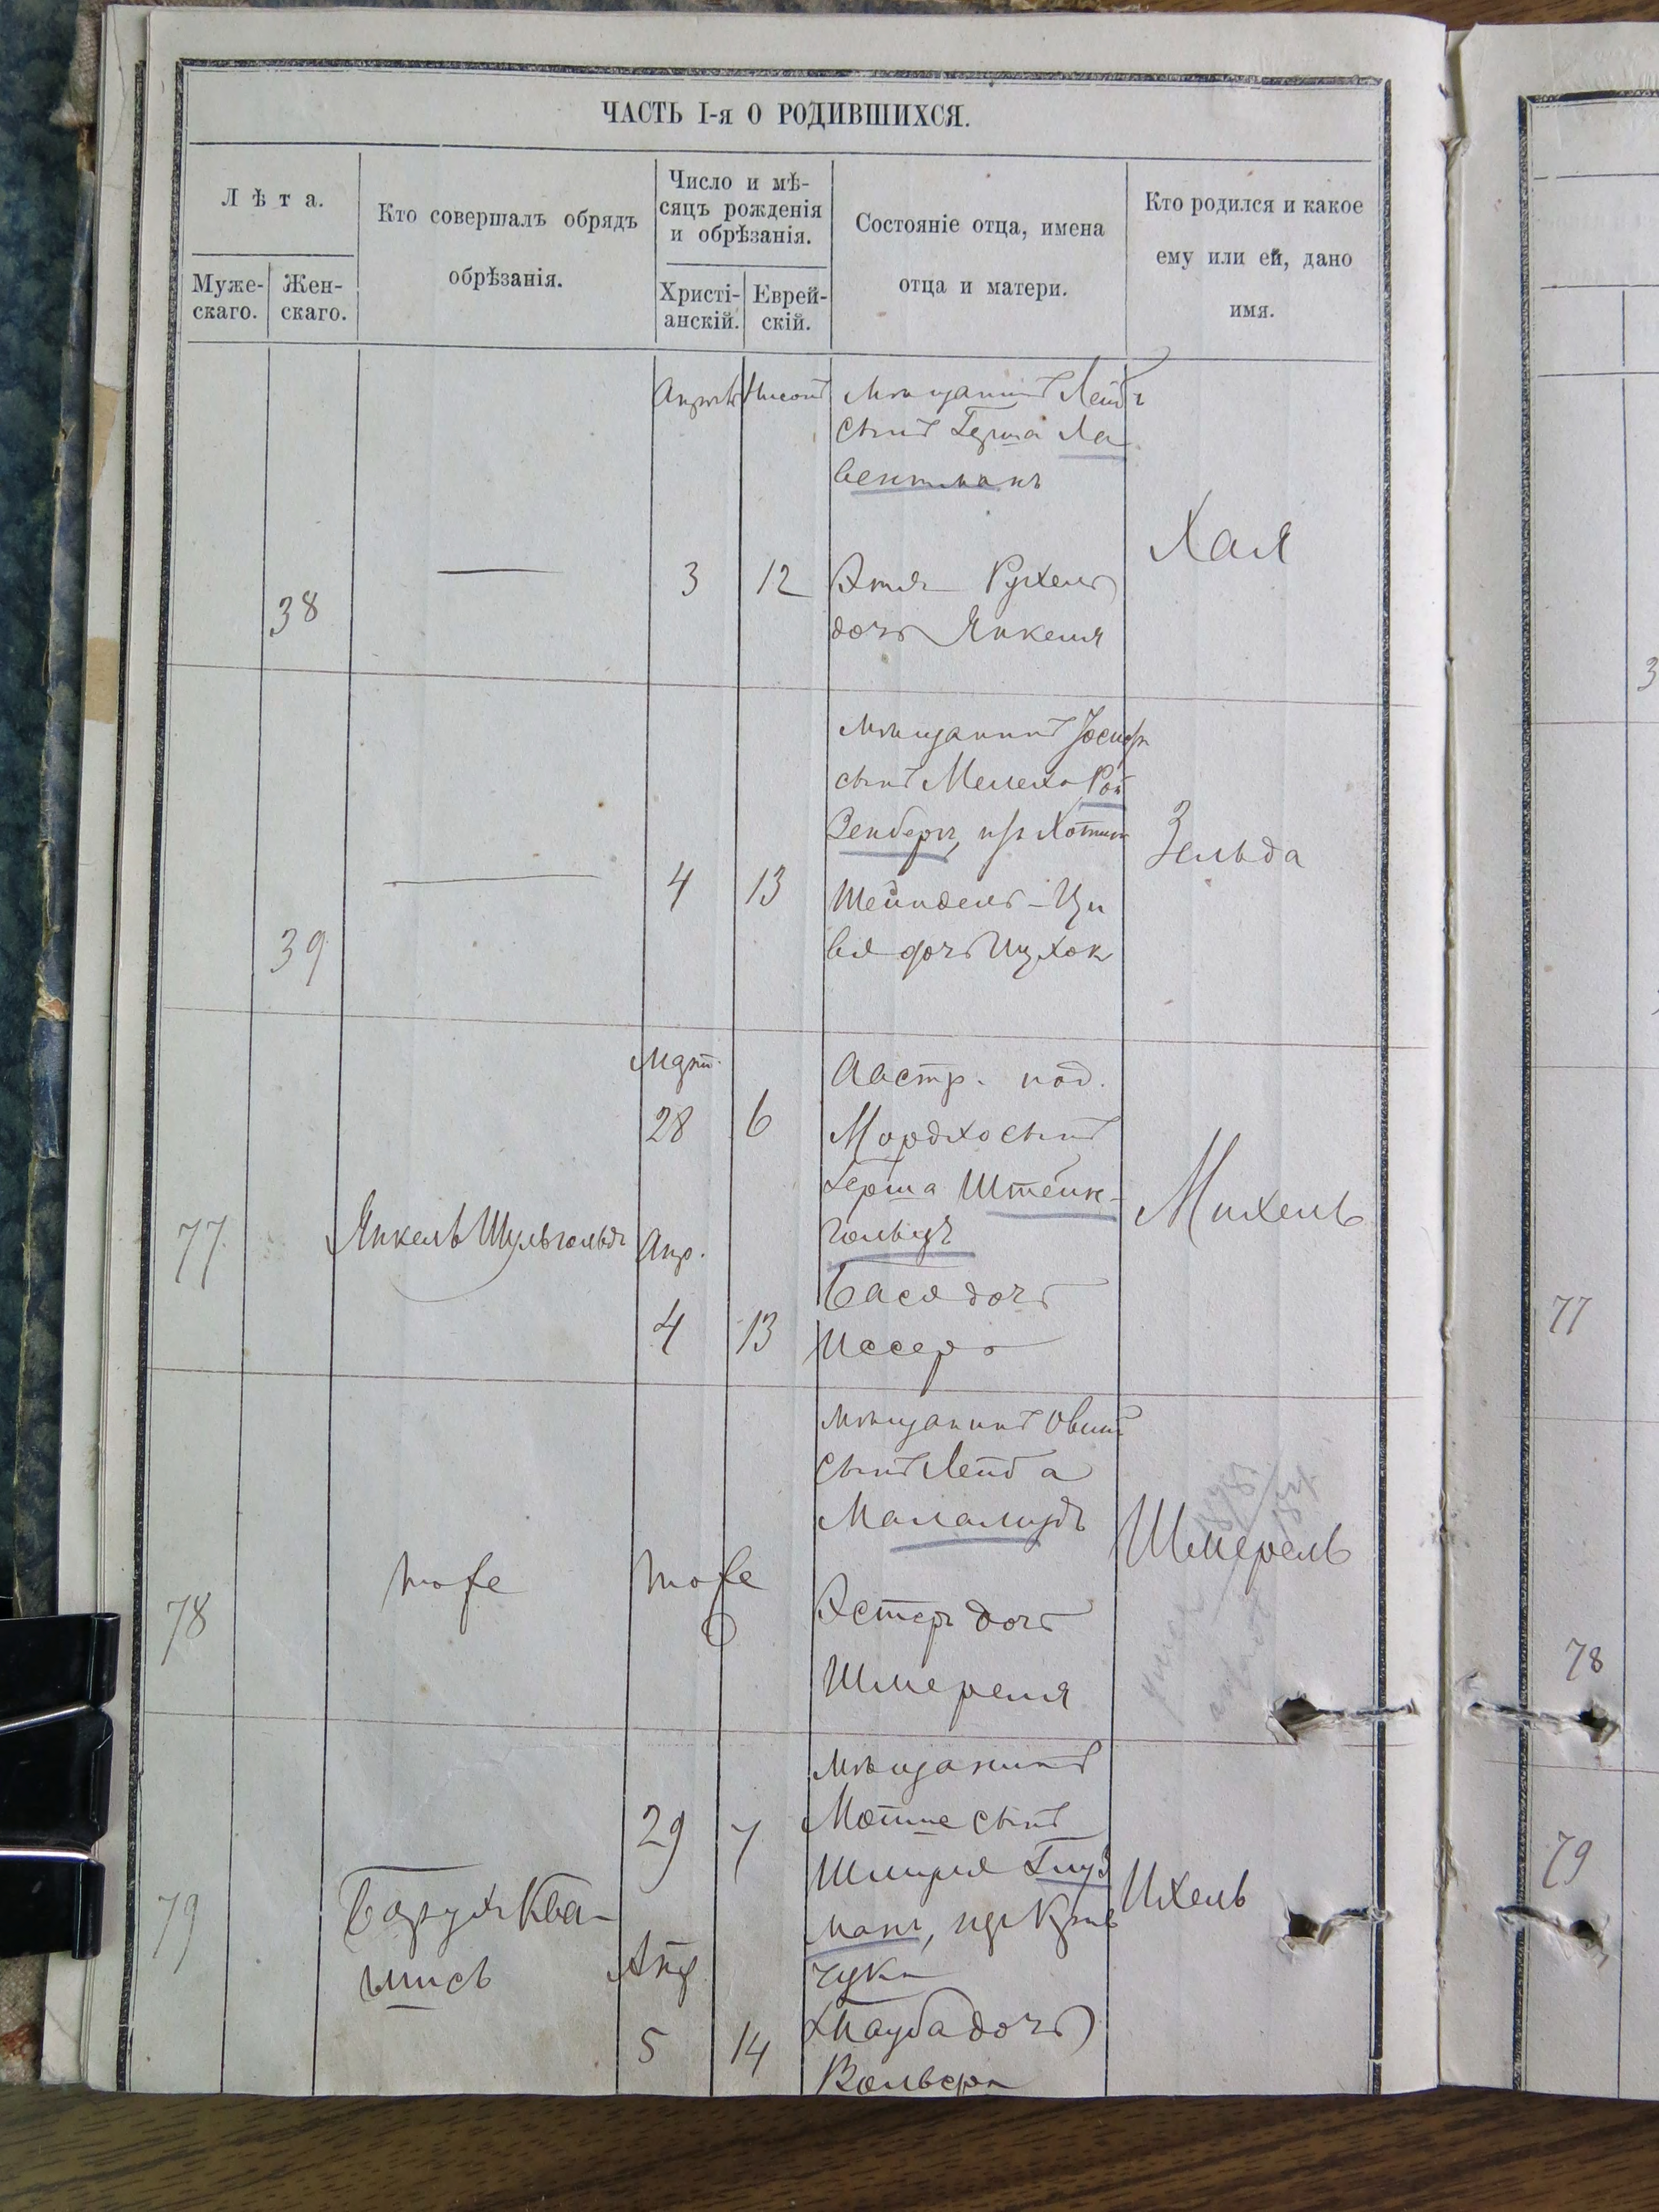 ЧАСТЬ I-я О РОДИВШИХСЯ.
Лѣта.
Муже-
скаго.
Жен-
скаго.
Кто совершалъ обрядъ
обрѣзанія.
Число и мѣ-
сяцъ рожденія
и обрѣзанія.
Христі-
анскій.
Еврей-
скій.
Состояніе отца, имена
отца и матери.
Кто родился и какое
ему или ей, дано
имя.
38
—
Апрѣль
3
Нисонъ
12
Мѣщанинъ Лейбъ
сынъ Герша Ла
вентманъ
Этля Рухель
дочь Янкеля
Хая
39
—
4
13
Мѣщанинъ Іосифъ
сынъ Мелеха Рой
зенберъ, изъ Хотина
Шейндель-Ци
вя дочь Ицхока
Зельда
77
Янкель Шульгольдъ
Март.
28
6
Апр.
4
13
Австр. под.
Мордхо сынъ
Герша Штейнк-
гольцъ
Бася дочь
Иссера
Михель
78
тоже
тоже
Мѣщанинъ Овшій
сынъ Лейба
Маламудъ
Эстеръ дочь
Шмереля
Шмерель
79
Борухъ Ква-
шись
29
7
Апр
5
14
Мѣщанинъ
Мотше сынъ
Шмиря Глуз
манъ, изъ Креме
чука
Тауба дочь
Вольвера
Ихель
77
78
79